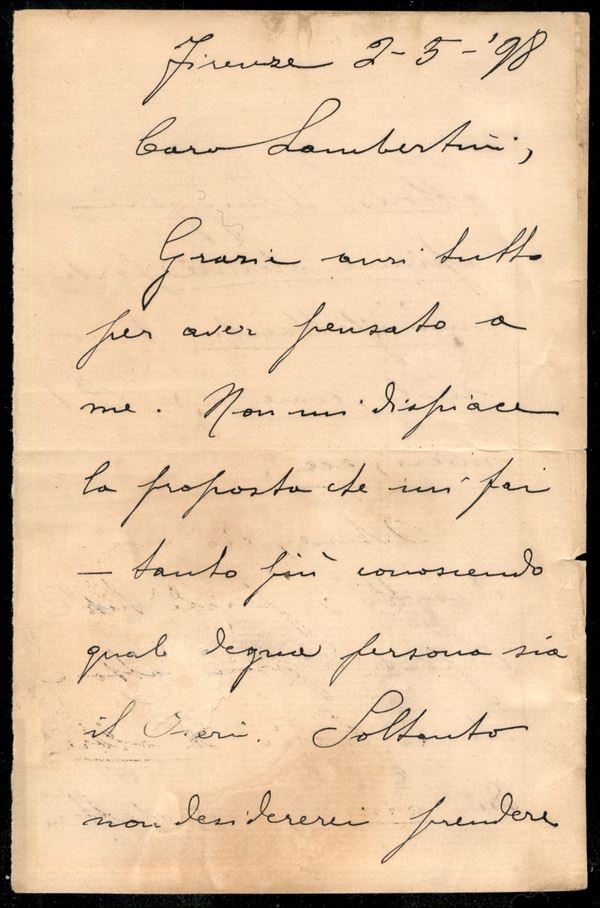 Firenze 2-5-'98
Caro Lambertini,
Grazie anzi tutto
per aver pensato a
me. Non mi dispiace
la proposta che mi fai
— tanto più conoscendo
quale degna persona sia
il Soltanto
non desidererei prendere